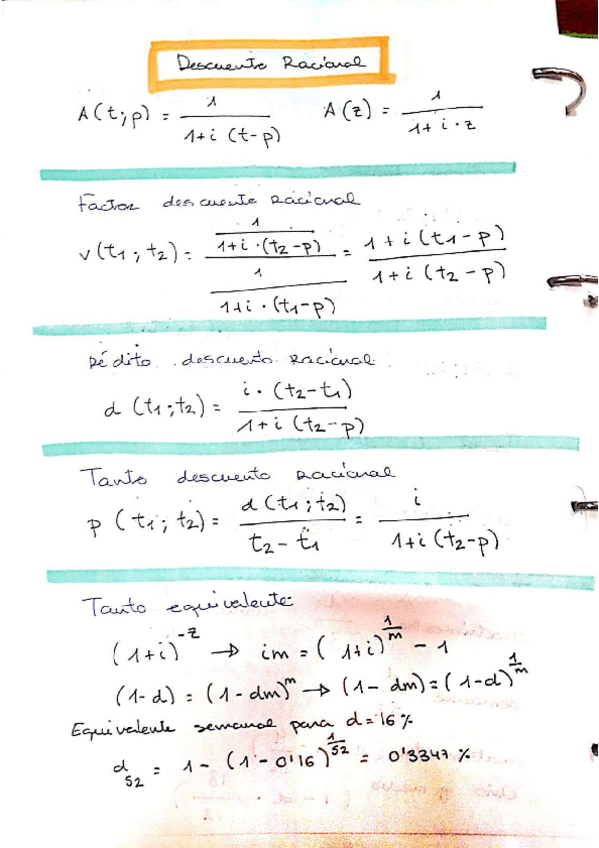 Descuento Racional
A(t;p) = 1 / (1+i (t-p))    A(z) = 1 / (1+i·z)
Factor descuento racional
v(t1;t2) = (1 / (1+i·(t2-p))) / (1 / (1+i·(t1-p))) = (1+i(t1-p)) / (1+i(t2-p))
Rédito descuento Racional
d(t1;t2) = i·(t2-t1) / (1+i(t2-p))
Tanto descuento racional
p(t1;t2) = d(t1;t2) / (t2-t1) = i / (1+i(t2-p))
Tanto equivalente
(1+i)^-z → im = (1+i)^(1/m) - 1
(1-d) = (1-dm)^m → (1-dm) = (1-d)^(1/m)
Equivalente semanal para d=16%
d52 = 1-(1-0'16)^(1/52) = 0'3347%